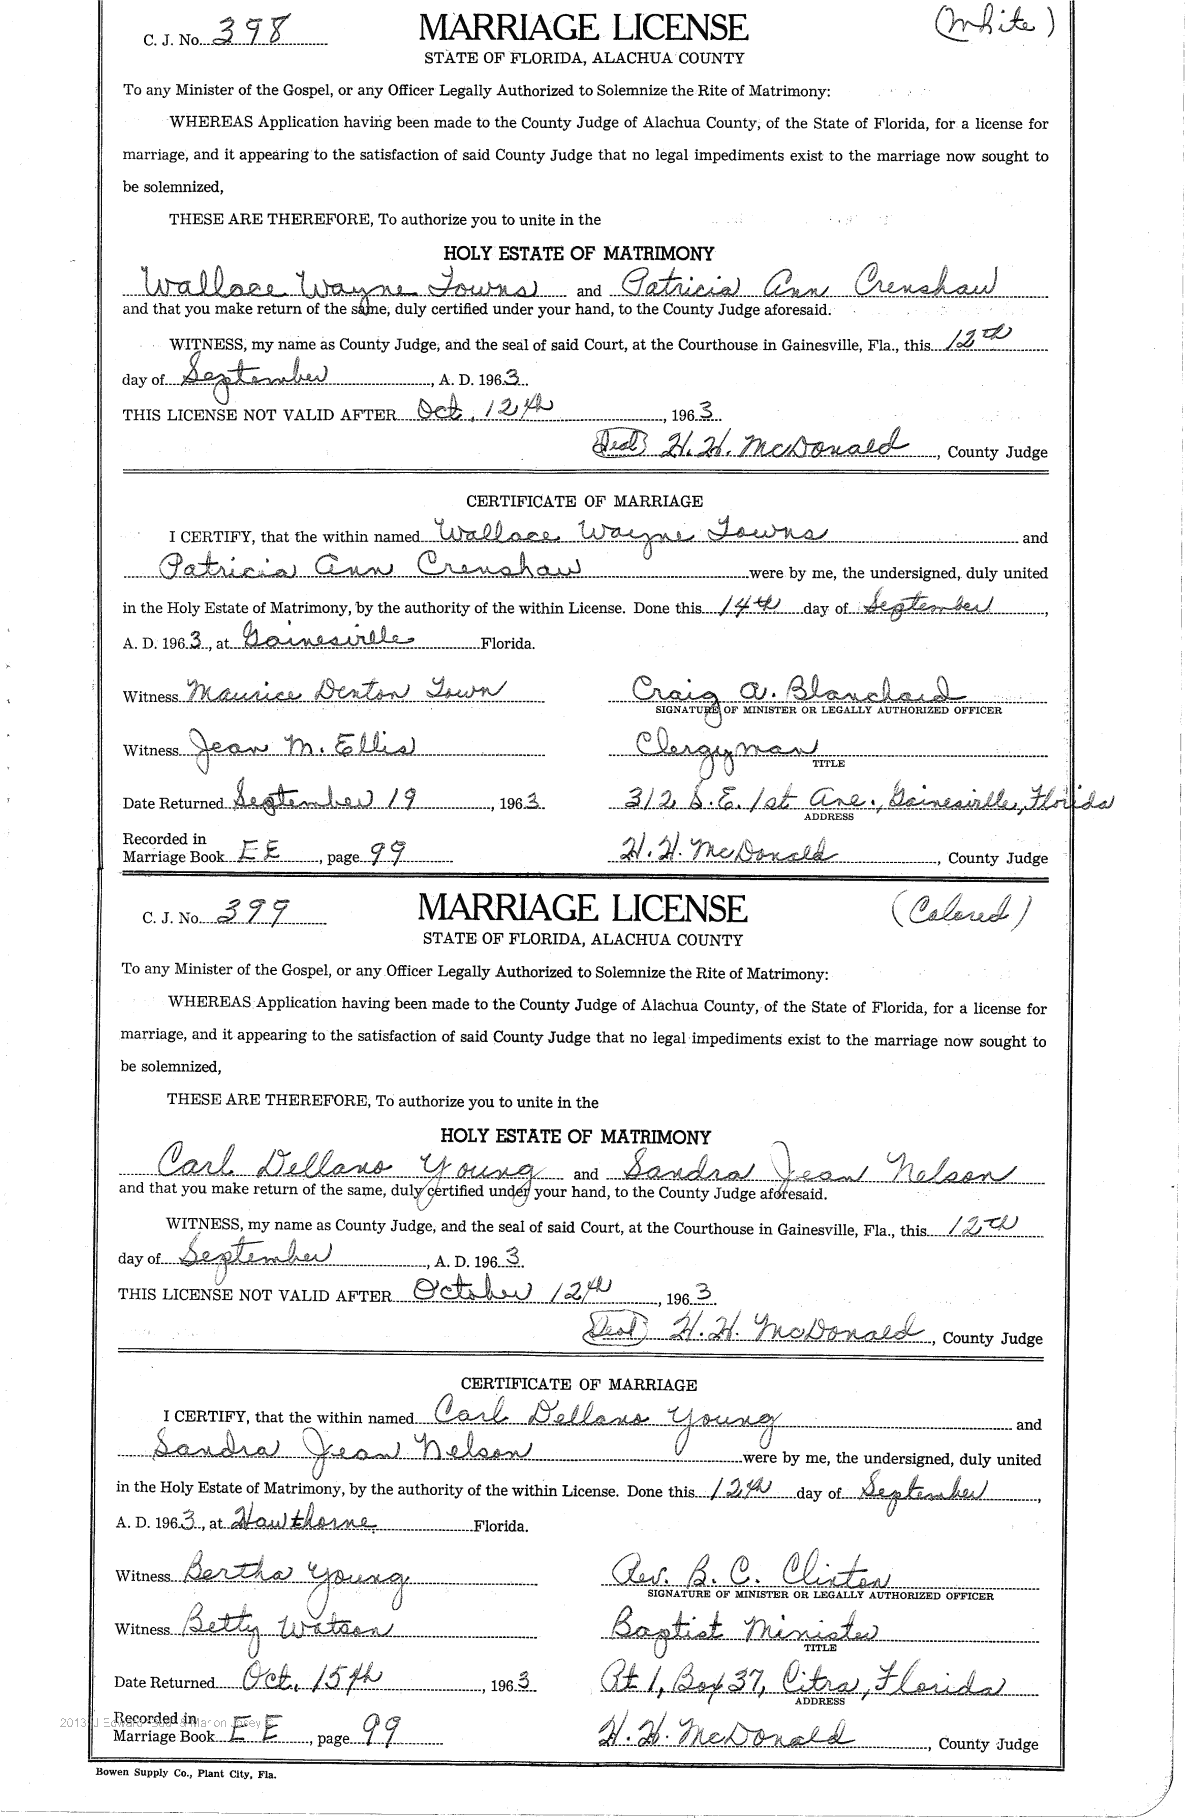 C. J. No. 398 MARRIAGE LICENSE (White)
STATE OF FLORIDA, ALACHUA COUNTY
To any Minister of the Gospel, or any Officer Legally Authorized to Solemnize the Rite of Matrimony:
WHEREAS Application having been made to the County Judge of Alachua County, of the State of Florida, for a license for
marriage, and it appearing to the satisfaction of said County Judge that no legal impediments exist to the marriage now sought to
be solemnized,
THESE ARE THEREFORE, To authorize you to unite in the
HOLY ESTATE OF MATRIMONY
Wallace Wayne Towns and Patricia Ann Crenshaw
and that you make return of the same, duly certified under your hand, to the County Judge aforesaid.
WITNESS, my name as County Judge, and the seal of said Court, at the Courthouse in Gainesville, Fla., this 12th
day of September, A. D. 1963.
THIS LICENSE NOT VALID AFTER Oct. 12th, 1963
(Seal) H. H. McDonald, County Judge
CERTIFICATE OF MARRIAGE
I CERTIFY, that the within named Wallace Wayne Towns and
Patricia Ann Crenshaw were by me, the undersigned, duly united
in the Holy Estate of Matrimony, by the authority of the within License. Done this 14th day of September,
A. D. 1963, at Gainesville Florida.
Witness Maurice Denton Town Craig A. Blanchard
SIGNATURE OF MINISTER OR LEGALLY AUTHORIZED OFFICER
Witness Jean M. Ellis Clergyman
TITLE
Date Returned September 19, 1963 312 S.E. 1st Ave., Gainesville, Florida
ADDRESS
Recorded in
Marriage Book EE, page 99 H. H. McDonald, County Judge
C. J. No. 399 MARRIAGE LICENSE (Colored)
STATE OF FLORIDA, ALACHUA COUNTY
To any Minister of the Gospel, or any Officer Legally Authorized to Solemnize the Rite of Matrimony:
WHEREAS Application having been made to the County Judge of Alachua County, of the State of Florida, for a license for
marriage, and it appearing to the satisfaction of said County Judge that no legal impediments exist to the marriage now sought to
be solemnized,
THESE ARE THEREFORE, To authorize you to unite in the
HOLY ESTATE OF MATRIMONY
Carl Dellano Young and Sandra Jean Nelson
and that you make return of the same, duly certified under your hand, to the County Judge aforesaid.
WITNESS, my name as County Judge, and the seal of said Court, at the Courthouse in Gainesville, Fla., this 12th
day of September, A. D. 1963.
THIS LICENSE NOT VALID AFTER October 12th, 1963
(Seal) H. H. McDonald, County Judge
CERTIFICATE OF MARRIAGE
I CERTIFY, that the within named Carl Dellano Young and
Sandra Jean Nelson were by me, the undersigned, duly united
in the Holy Estate of Matrimony, by the authority of the within License. Done this 12th day of September,
A. D. 1963, at Hawthorne Florida.
Witness Bertha Young Rev. B. C. Clinton
SIGNATURE OF MINISTER OR LEGALLY AUTHORIZED OFFICER
Witness Betty Watson Baptist Minister
TITLE
Date Returned Oct. 15th, 1963 Rt 1, Box 37, Citra, Florida
ADDRESS
Recorded in
Marriage Book EE, page 99 H. H. McDonald, County Judge
Bowen Supply Co., Plant City, Fla.